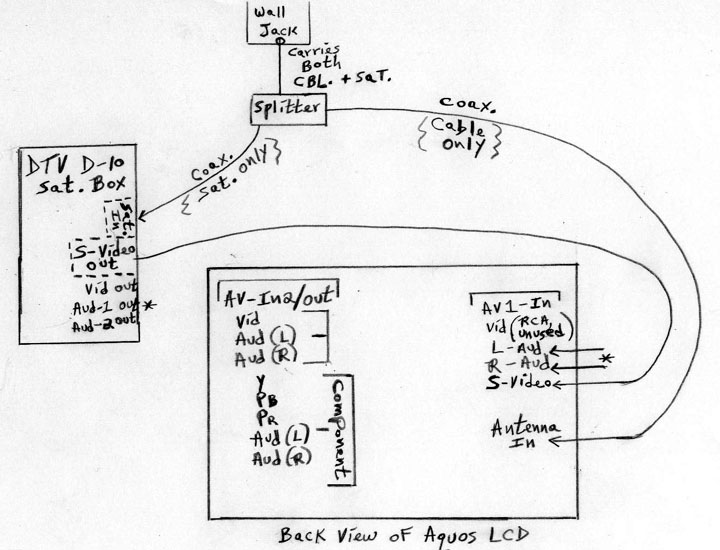 Wall
Jack
Carries
Both
CBL. + Sat.
Splitter
Coax.
{Cable
only}
Coax.
{Sat. only}
DTV D-10
Sat. Box
Sat.
In
S-Video
out
Vid out
Aud-1 out *
Aud-2 out
AV-In2/out
Vid
Aud (L)
Aud (R)
Y
PB
PR
Aud (L)
Aud (R)
Component
AV1-In
Vid (RCA,
unused)
L-Aud
R-Aud
*
S-Video
Antenna
In
Back View of Aquos LCD